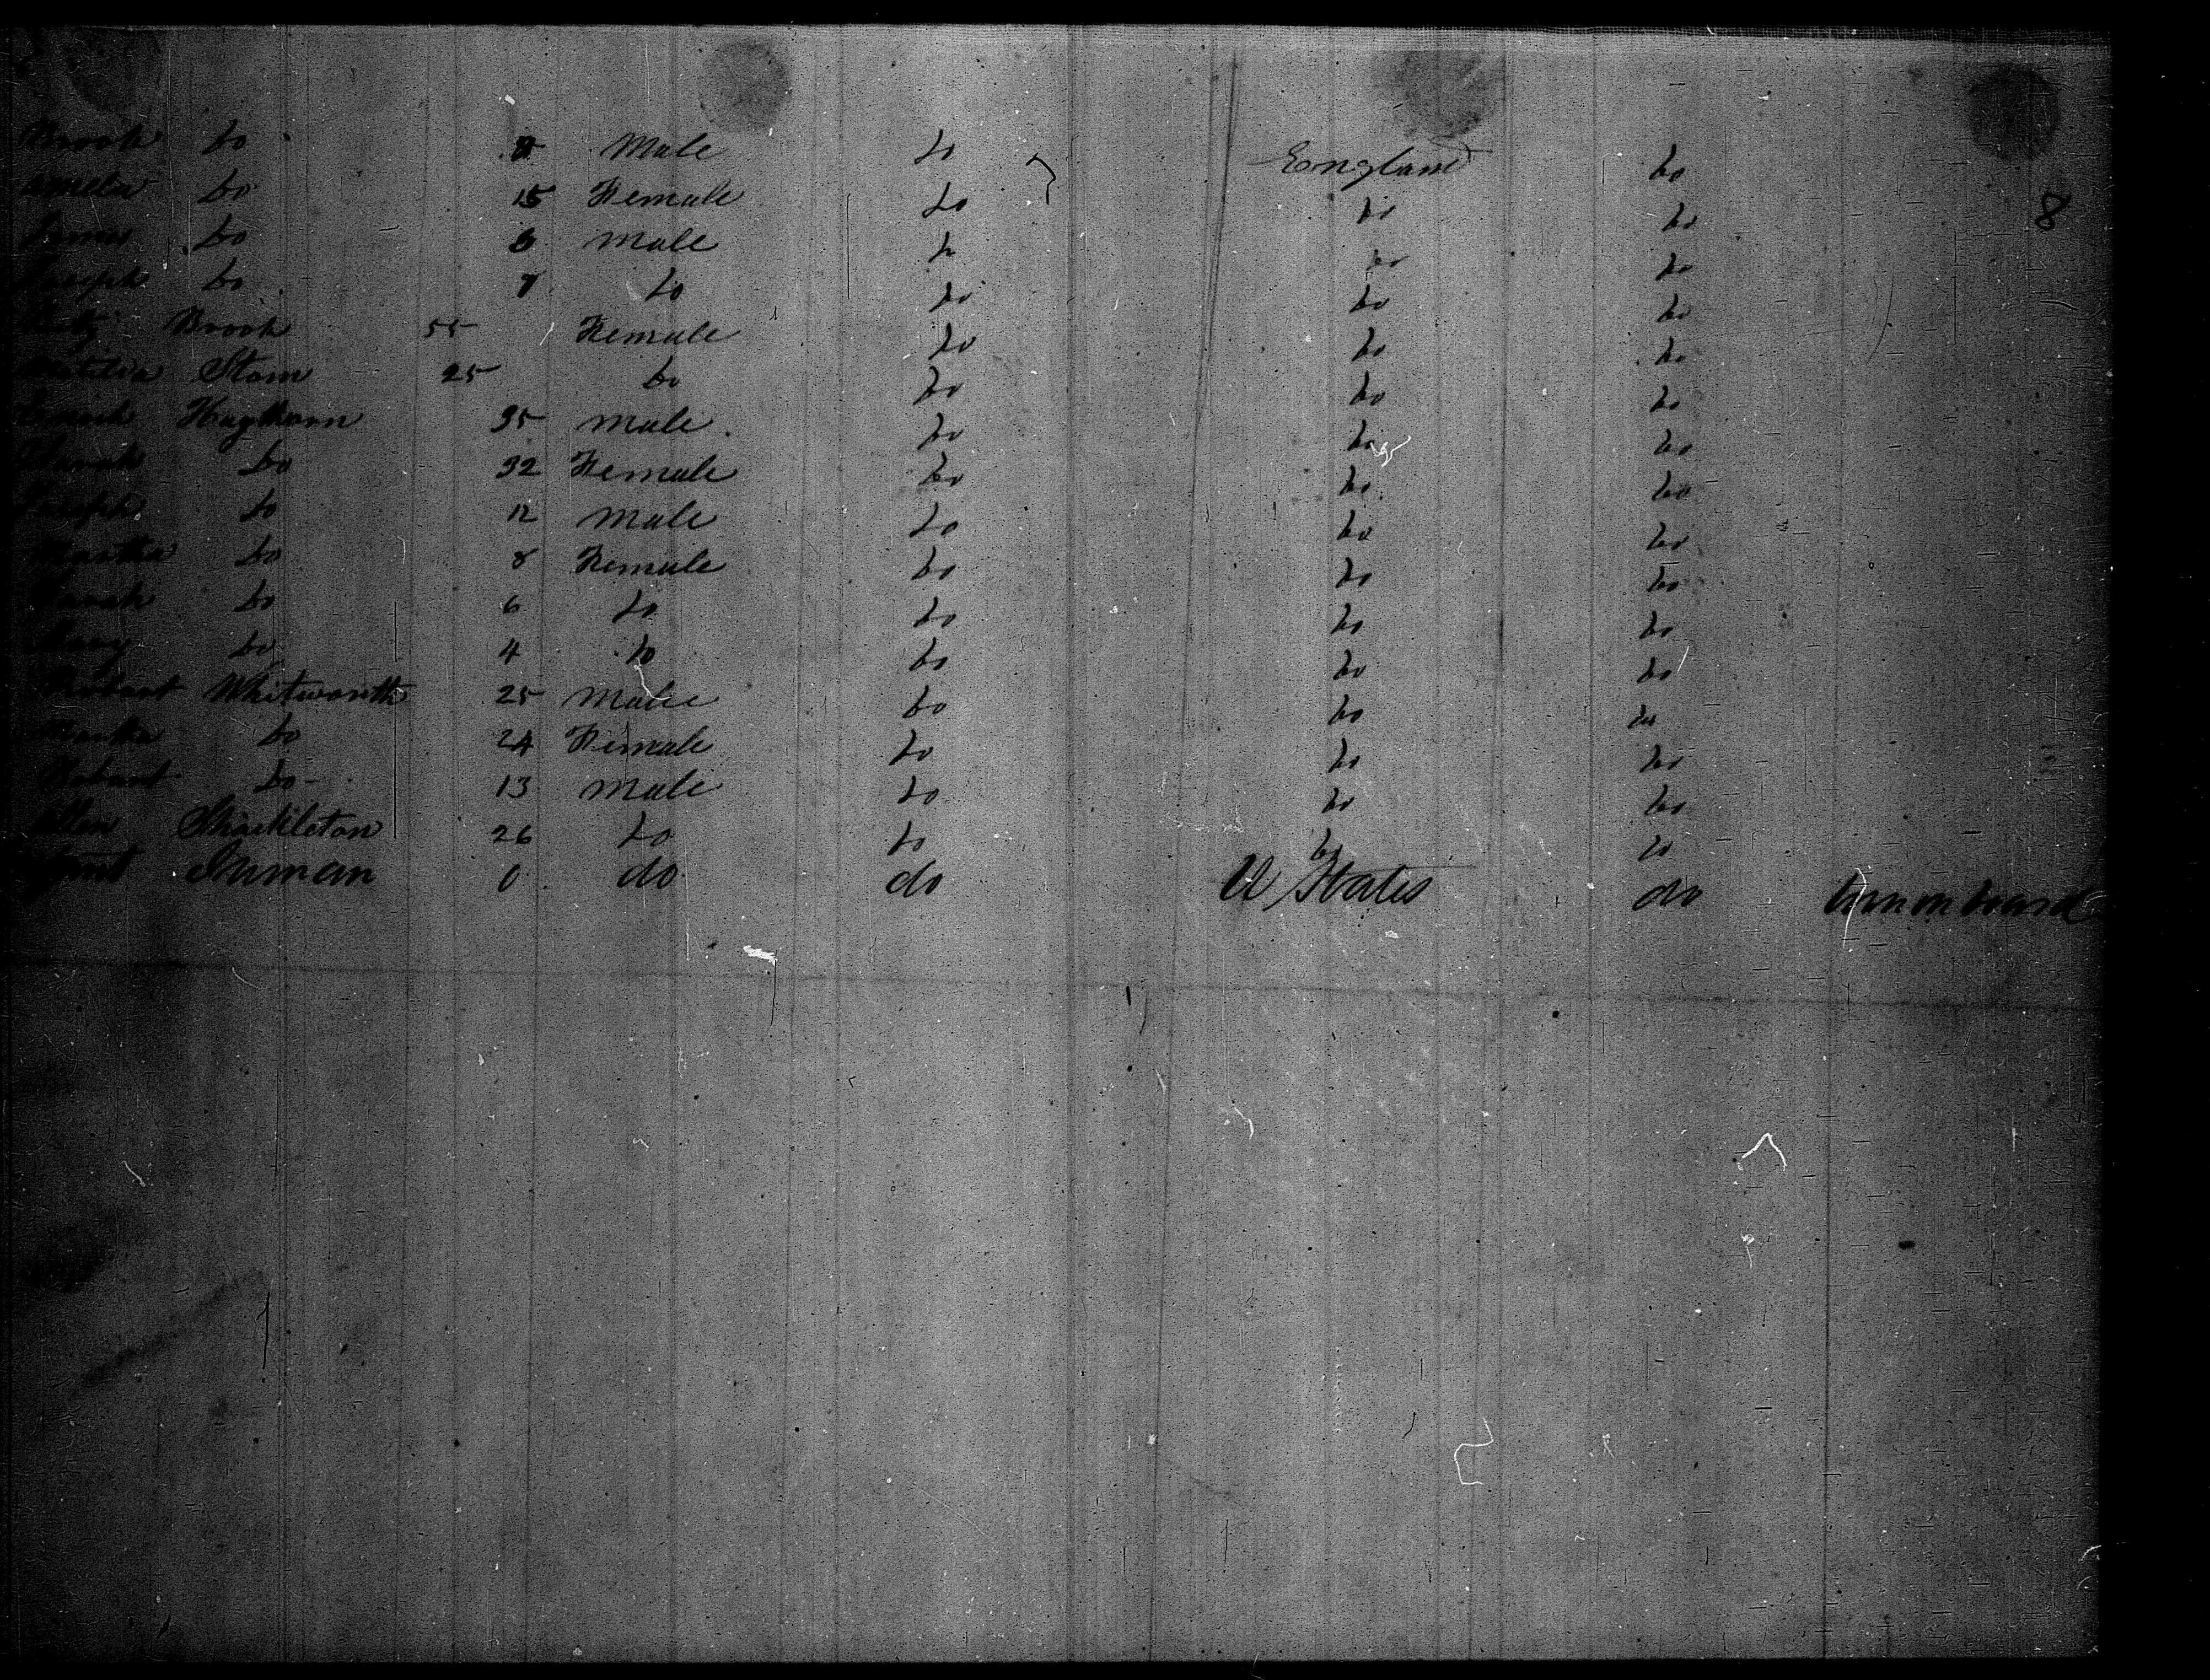 Brook do 8 Male do England do
do 15 Female do do do
8
James do 6 Male do do do
Joseph do 7 do do do do
Brook 55 Female do do do
Matilda Stom 25 do do do do
Enoch Hagthorn 35 Male do do do
Hannah do 32 Female do do do
Joseph do 12 Male do do do
Martha do 8 Female do do do
Sarah do 6 do do do do
Mary do 4 do do do do
Robert Whitworth 25 Male do do do
Martha do 24 Female do do do
Robert do 13 Male do do do
Allen Shackleton 26 do do do do
Infant Inman 0 do do U States do born on board